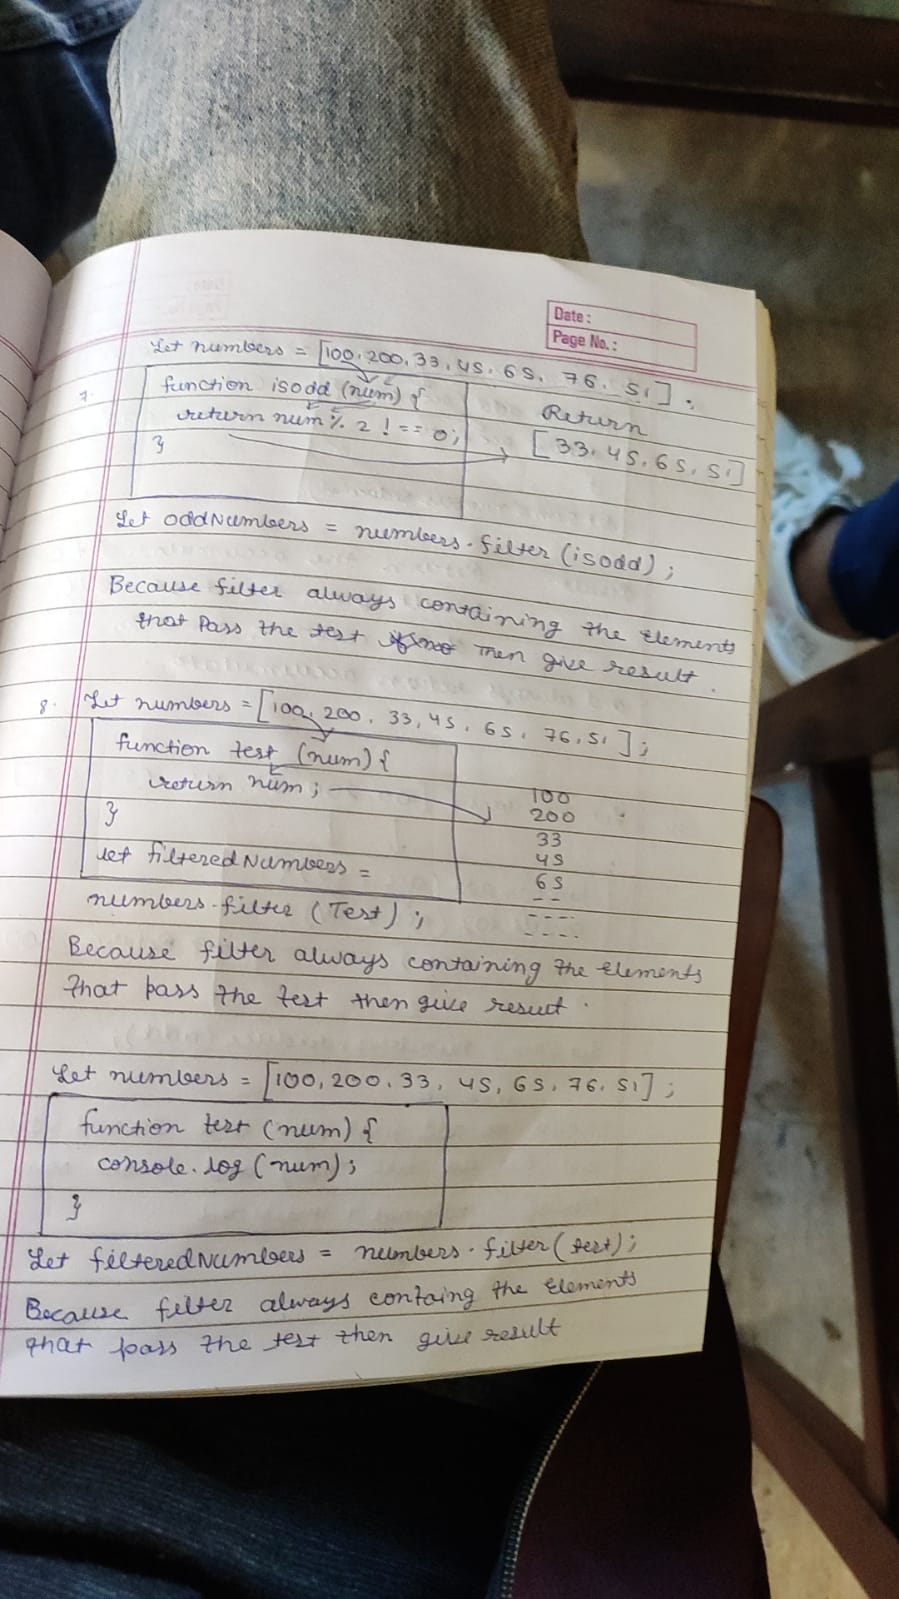 Date:
Page No.:
Let numbers = [100, 200, 33, 45, 65, 76, 51];
7.
function isodd (num) {
return num % 2 ! == 0;
}
Return
[33, 45, 65, 51]
Let oddNumbers = numbers.filter (isodd);
Because filter always containing the elements
that Pass the test Then give result.
8. Let numbers = [100, 200, 33, 45, 65, 76, 51];
function test (num) {
return num;
}
let filteredNumbers =
numbers.filter (Test);
100
200
33
45
65
-- 
----
----
Because filter always containing the elements
that pass the test then give result.
Let numbers = [100, 200, 33, 45, 65, 76, 51];
function test (num) {
console.log (num);
}
Let filteredNumbers = numbers.filter (test);
Because filter always containg the elements
that pass the test then give result